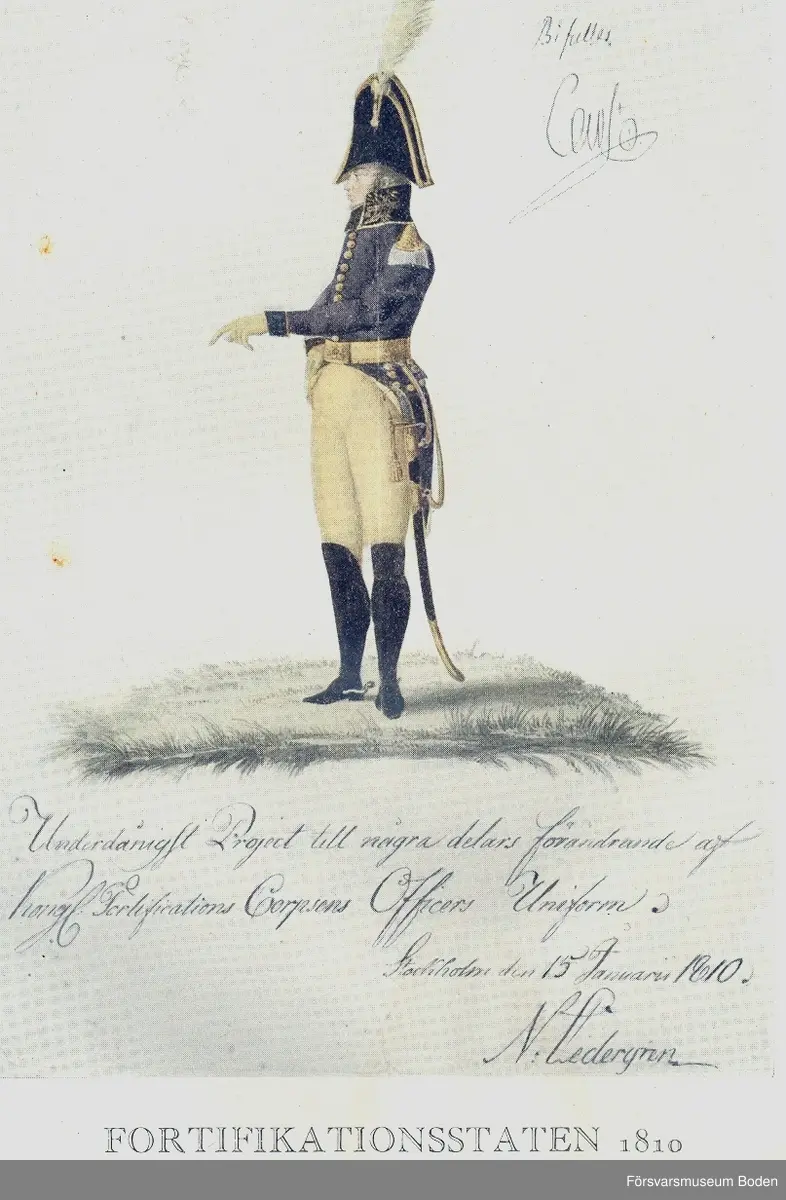 Bifalles.
Carl
Underdånigst Project till några delars förändrande af
Kongl. Fortifications Corpsens Officers Uniform.
Stockholm den 15 Januarii 1810.
N: Cedergren
FORTIFIKATIONSSTATEN 1810
Försvarsmuseum Boden